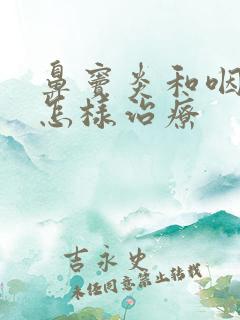 鼻窦炎和咽
怎樣治療
吉永史
未经同意禁止转载